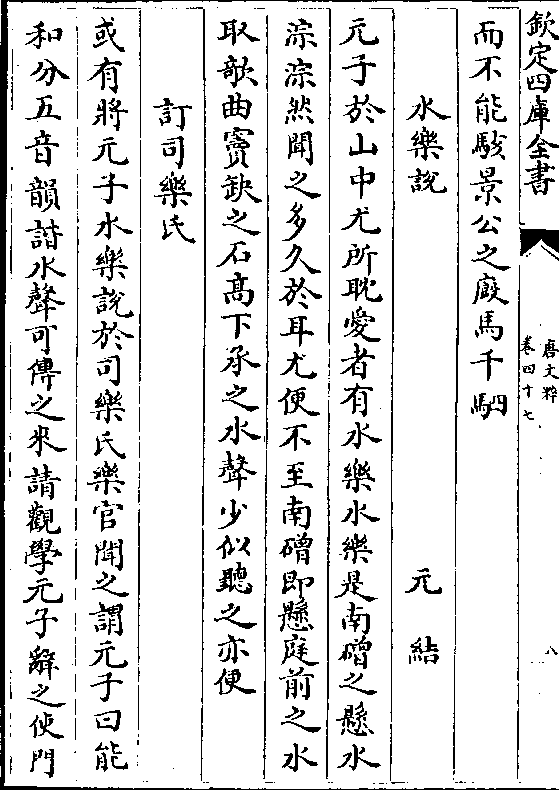 欽定四庫全書
唐文粹
卷四十七
八
而不能駭景公之廐馬千駟
水樂說
元結
元子於山中尤所耽愛者有水樂水樂是南磳之懸水
淙淙然聞之多久於耳尤便不至南磳即懸庭前之水
取歌曲竇缺之石高下承之水聲少似聽之亦便
訂司樂氏
或有將元子水樂說於司樂氏樂官聞之謂元子曰能
和分五音韻諧水聲可傳之來請觀學元子辭之使門